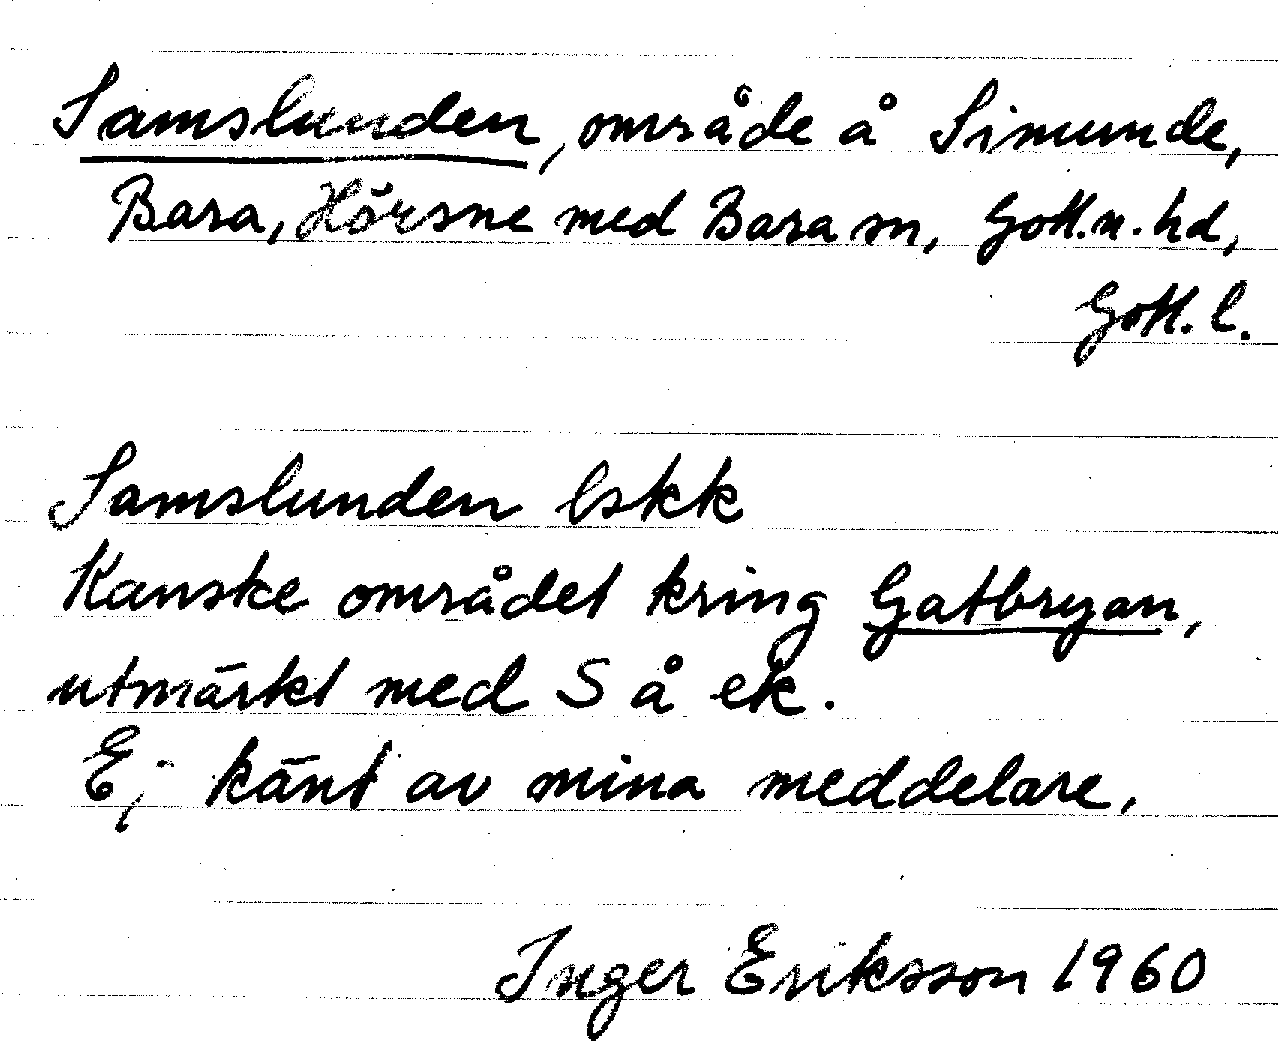 Samslunden, område å Simunde,
Bara, Hörsne med Bara sn, Gotl. n. hd,
Gotl. l.
Samslunden lskk
Kanske området kring Gatbryan,
utmärkt med S å ek.
Ej känt av mina meddelare.
Inger Eriksson 1960